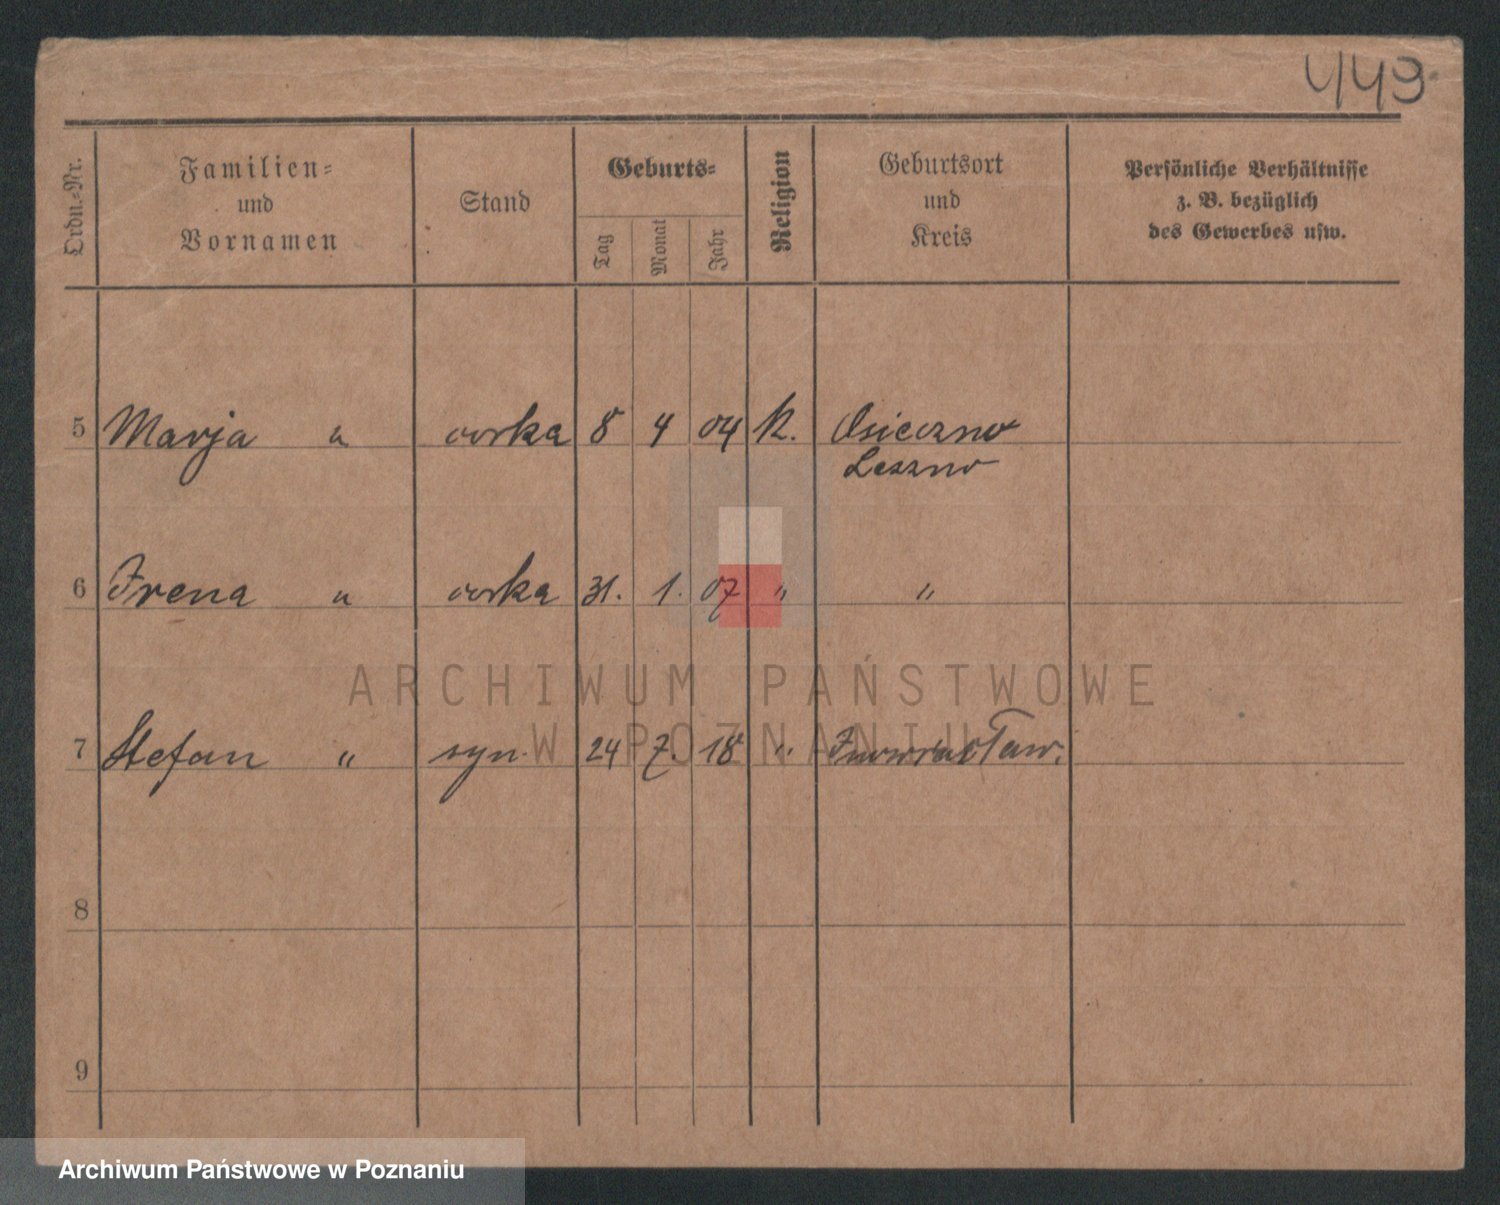 449.
Ordn.-Nr.
Familien-
und
Vornamen
Stand
Geburts-
Tag
Monat
Jahr
Religion
Geburtsort
und
Kreis
Persönliche Verhältnisse
z. B. bezüglich
des Gewerbes usw.
5 Marja " corka 8 4 04 K. Osieczno
Leszno
6 Irena " corka 31. 1. 07 " "
ARCHIWUM PAŃSTWOWE
W POZNANIU
7 Stefan " syn. 24 7. 18 " Inowrocław.
8
9
Archiwum Państwowe w Poznaniu